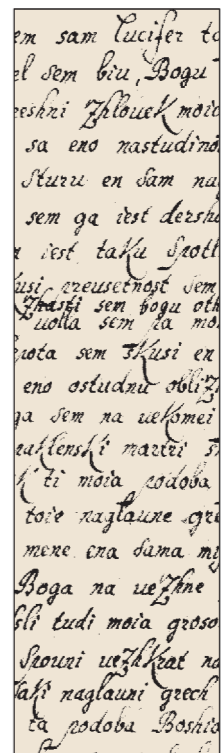 em sam lucifer to
el sem biu, Bogu
reshni Zhlouek moio
sa eno nastudino
Sturu en sam na
sem ga iest dershu
iest taku Spotl
kusi preusetnost sem
Zhasti sem bogu oth
uolla sem pa mo
lepota sem skusi en
eno ostudnu obliZh
ga sem na uekomei
paklenski martri s
K ti moia podoba
toie naglaune gre
mene ena sama my
Boga na ueZhne
sli tudi moia groso
Spouni ueZhkrat na
taki naglauni grech
ta podoba Boshia